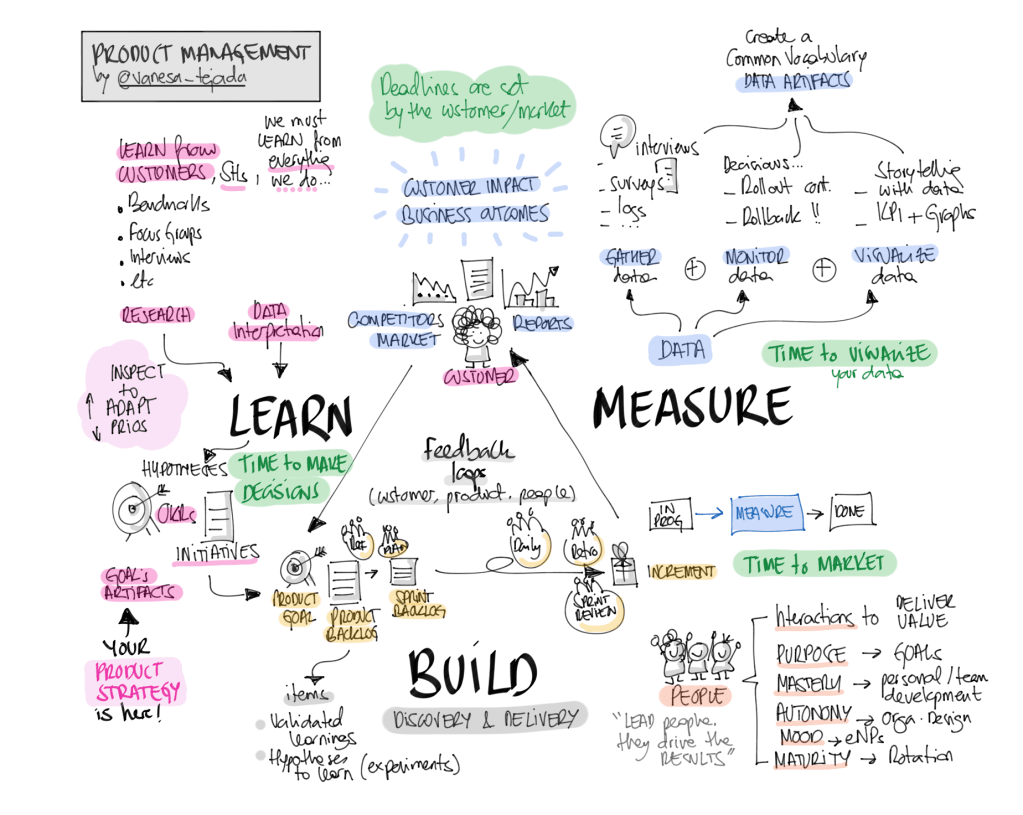 PRODUCT MANAGEMENT
by @vanesa_tejada
LEARN from
CUSTOMERS, SHs,
we must
LEARN from
everything
we do...
Benchmarks
Focus Groups
Interviews
etc
RESEARCH
DATA
Interpretation
INSPECT
to
ADAPT
PRIOS
LEARN
HYPOTHESES
TIME to MAKE
DECISIONS
OKRs
INITIATIVES
GOAL'S
ARTIFACTS
YOUR
PRODUCT
STRATEGY
is here!
Deadlines are set
by the customer/market
CUSTOMER IMPACT
BUSINESS OUTCOMES
COMPETITORS
MARKET
REPORTS
CUSTOMER
Feedback
loops
(customer, product, people)
REF
PLAN
Daily
Retro
SPRINT
REVIEW
PRODUCT
GOAL
PRODUCT
BACKLOG
SPRINT
BACKLOG
INCREMENT
BUILD
DISCOVERY & DELIVERY
items
Validated
learnings
Hypotheses
to learn (experiments)
Create a
Common Vocabulary
DATA ARTIFACTS
interviews
- surveys
- logs
- ...
Decisions...
- Rollout cont.
- Rollback !!
Storytelling
- with data
- KPI + Graphs
GATHER
data
+
MONITOR
data
+
VISUALIZE
data
DATA
TIME to VISUALIZE
your data
MEASURE
IN
PROG
MEASURE
DONE
TIME to MARKET
PEOPLE
"LEAD people.
they drive the
RESULTS"
Interactions to DELIVER
VALUE
PURPOSE → GOALS
MASTERY → personal/team
development
AUTONOMY → Orga. Design
MOOD → eNPS
MATURITY → Rotation